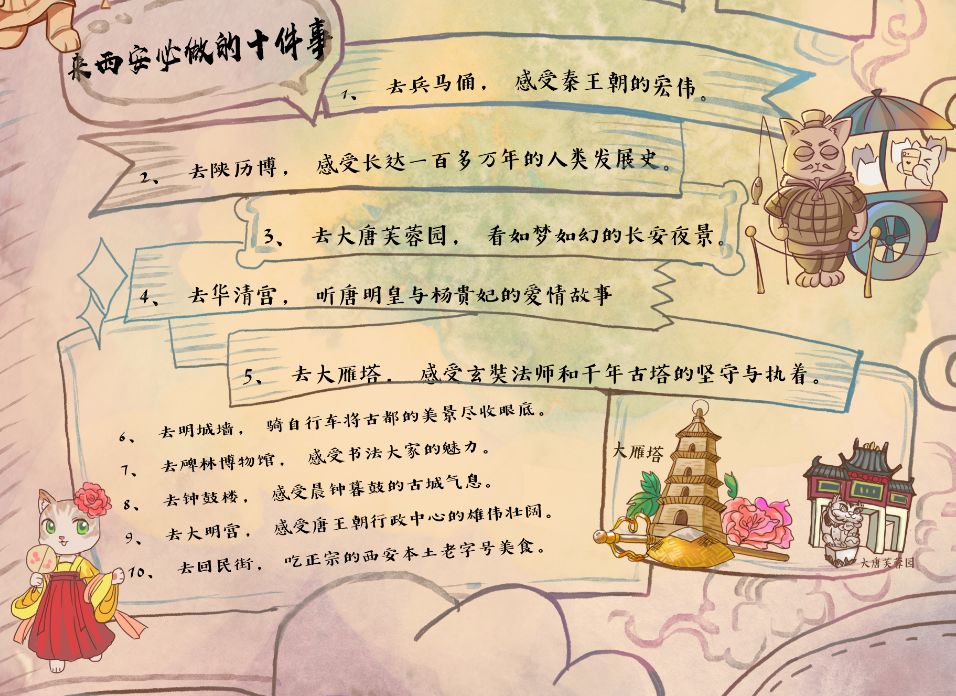 来西安必做的十件事
1、 去兵马俑， 感受秦王朝的宏伟。
2、 去陕历博， 感受长达一百多万年的人类发展史。
3、 去大唐芙蓉园， 看如梦如幻的长安夜景。
4、 去华清宫， 听唐明皇与杨贵妃的爱情故事
5、 去大雁塔， 感受玄奘法师和千年古塔的坚守与执着。
6、 去明城墙， 骑自行车将古都的美景尽收眼底。
7、 去碑林博物馆， 感受书法大家的魅力。
8、 去钟鼓楼， 感受晨钟暮鼓的古城气息。
9、 去大明宫， 感受唐王朝行政中心的雄伟壮阔。
10、 去回民街， 吃正宗的西安本土老字号美食。
大雁塔
大唐芙蓉园